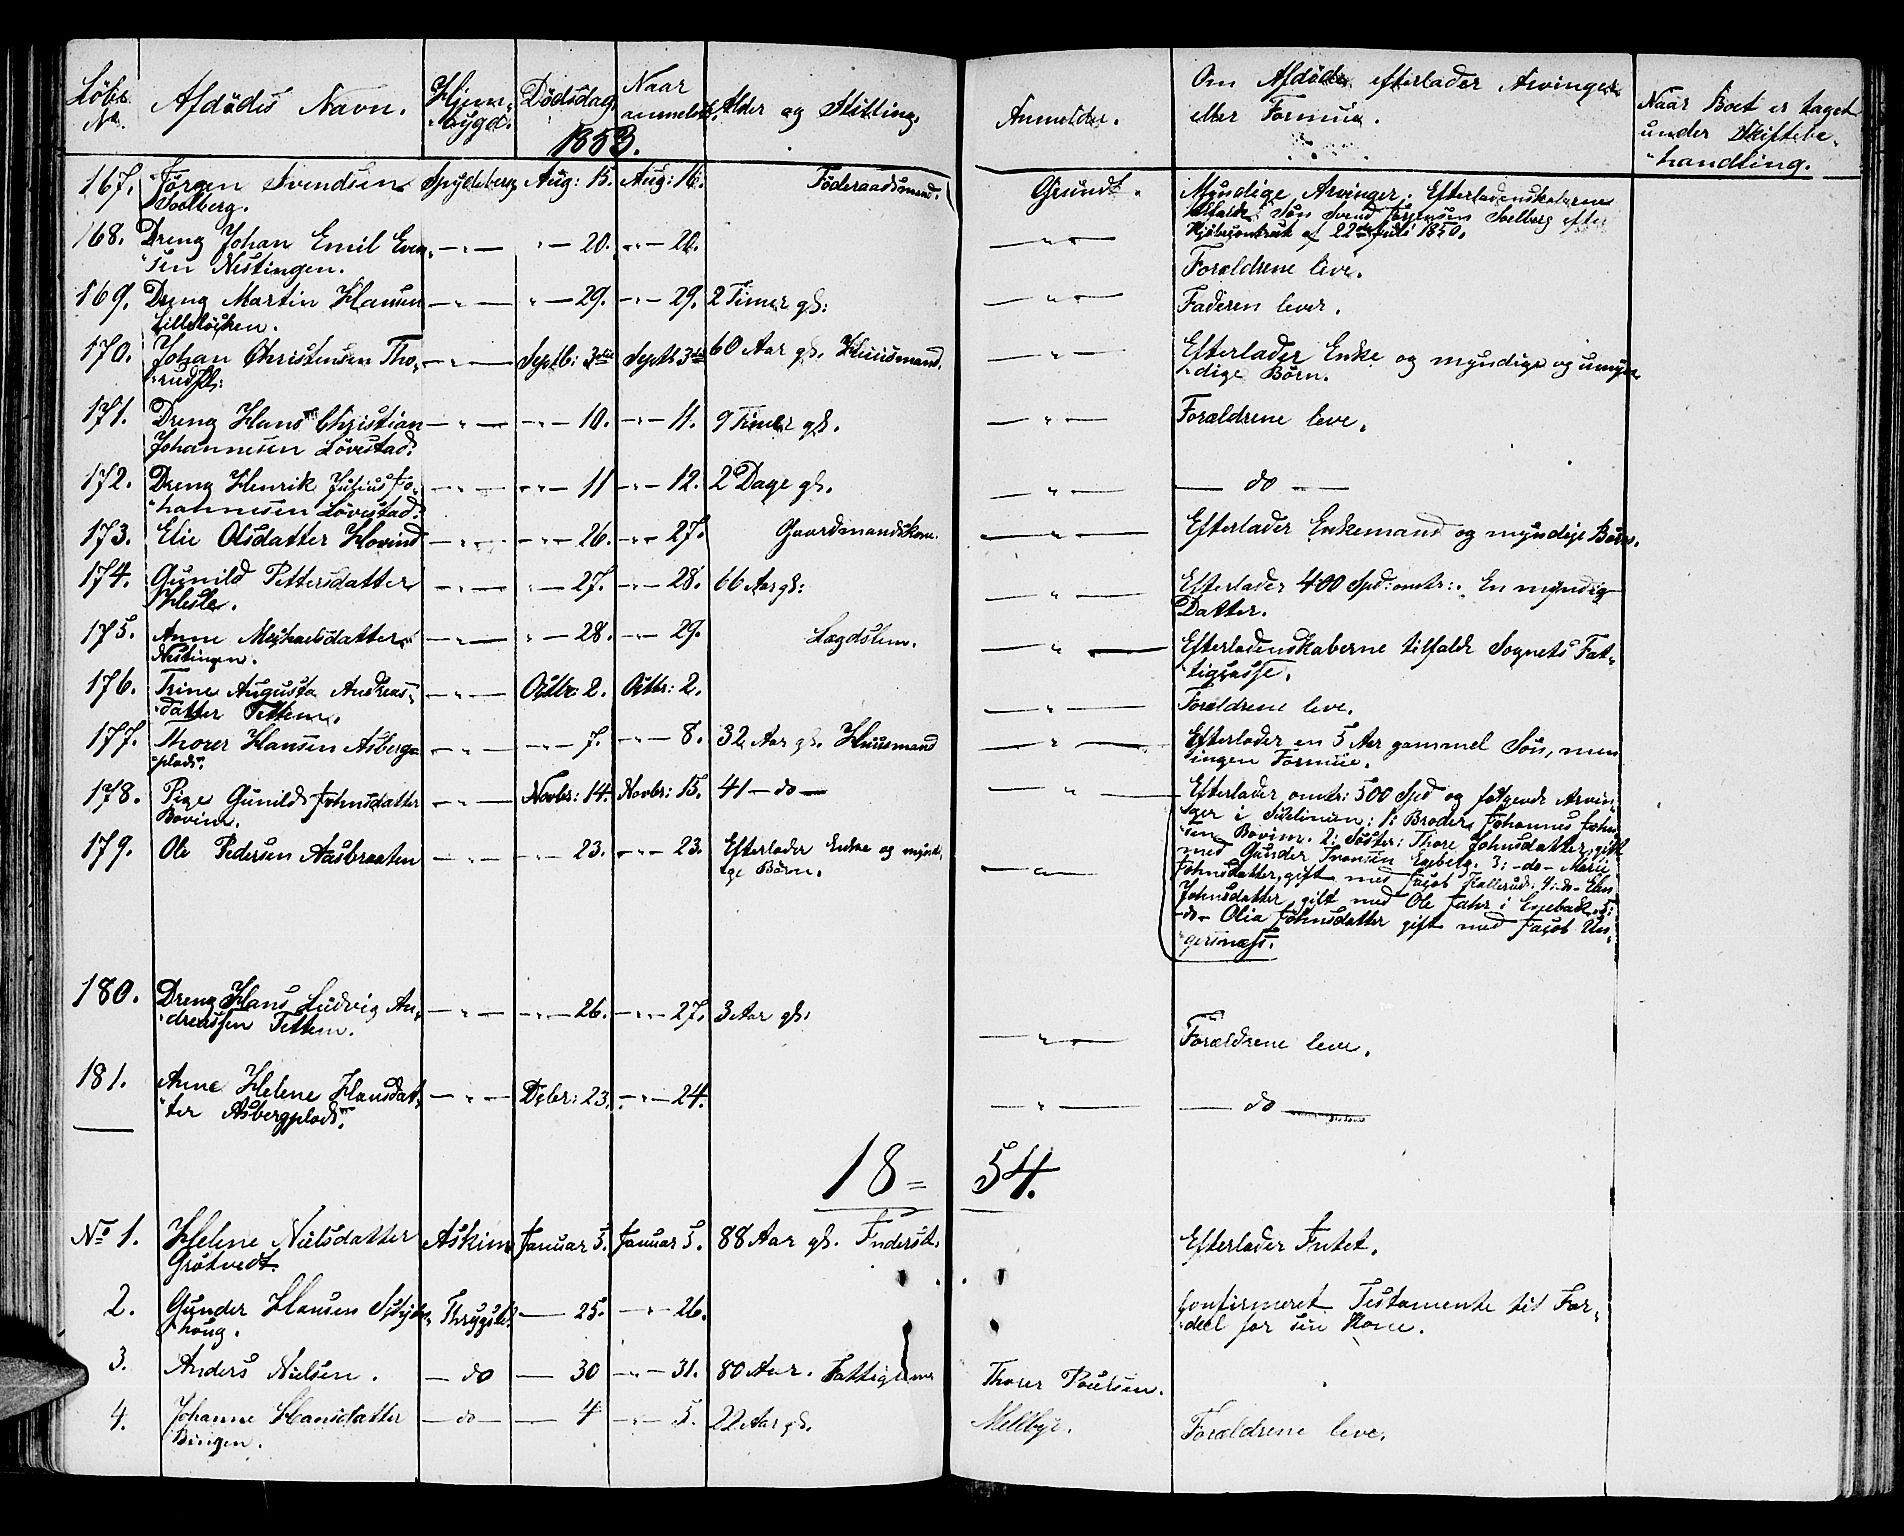 Löbe No. Afdödes Navn. Hjembygd. Dödsdag Naar anmeldt. Alder og Stilling. Anmelder. Om Afdöde efterlader Arvinger eller Formue. Naar Boet er taget under Skiftebehandling.
1853.
167. Jörgen Svendsen Solberg. Spydeberg Aug: 15. Aug: 16. Föderaadsmand. Grundt. Myndige Arvinger. Efterladenskaberne
Sön Svend Jörgensen Solberg efter
Kjöbecontract af 22de Juli 1850.
168. Dreng Johan Emil Even-
sen Nestingen. — " — " — 20. — " — 20. — " — Forældrene leve.
169. Dreng Martin Hansen
Lilleløkken. — " — " — 29. — " — 29. 2 Timer gl: — " — Faderen lever.
170. Johan Christensen Tho-
rud — " — Septb: 3die Septb 3die 60 Aar gl. Huusmand. — " — Efterlader Enke og myndige og umyn-
dige Börn.
171. Dreng Hans Christian
Johannesen Lövestad. — " — — " — 10. — " — 11. 9 Timer gl. — " — Forældrene leve.
172. Dreng Henrik Julius Jo-
hannesen Lövestad. — " — — " — 11 — " — 12. 2 Dage gl. — " — — do —
173. Elie Olsdatter Hovind — " — — " — 26. — " — 27. Gaardmandskone. — " — Efterlader Enkemand og myndige Börn.
174. Gunild Pettersdatter
Hesle. — " — — " — 27. — " — 28. 66 Aar gl: — " — Efterlader 400 Spd: omtr:. En myndig
Datter.
175. Anne Michaelsdatter
Nestingen. — " — " — 28. — " — 29. Lægdslem. — " — Efterladenskaberne tilfaldt Sognets Fat-
tigcasse.
176. Trine Augusta Andreas-
datter Tettem. — " — Octbr: 2. Octbr: 2. — " — Forældrene leve.
177. Thorer Hansen Asberg-
plads. — " — — " — 7. — " — 8. 32 Aar gl. Huusmand — " — Efterlader en 5 Aar gammel Sön, men
ingen Formue.
178. Pige Gunild Johnsdatter
Bovim. — " — Novbr: 14. Novbr: 15. 41 — do — — " — Efterlader omtr: 500 Spd og fölgende Arvin-
ger i Sidelinien: 1: Broder Johannes John-
sen Bovim. 2: Söster: Thore Johnsdatter, gift
med Gunder Iversen Egeberg. 3: — do — Marie
Johnsdatter, gift med Jacob Hallerud. 4: do — Elen
Johnsdatter gift med Ole Jahr i Enebak. 5:
— do — Olia Johnsdatter gift med Jacob Un-
gersnæss.
179. Ole Pedersen Aasbraaten — " — — " — 23. — " — 23. Efterlader Enke og myndi-
ge Börn. — " —
180. Dreng Hans Ludvig An-
dreassen Tettem. — " — — " — 26. — " — 27. 3 Aar gl. — " — Forældrene leve.
181. Anne Helene Hansdat-
ter Asbergplads. — " — Dcbr: 23. — " — 24. — " — — do —
18 = 54.
No 1. Helene Nielsdatter
Grötvedt. Askim Januar 5. Januar 5. 88 Aar gl. Indersit. Efterlader Intet.
2. Gunder Hansen
houg. Thrygstd. — 25. — " — 26. Confirmeret Testamente til For-
deel for sin Kone.
3. Anders Nielsen. — do — 30 — " — 31. 80 Aar. Fattiglem Thorer Poulsen.
4. Johanne Hansdatter
Bingen. — do — — 4 — " — 5. 22 Aar gl. Mellbye. Forældrene leve.